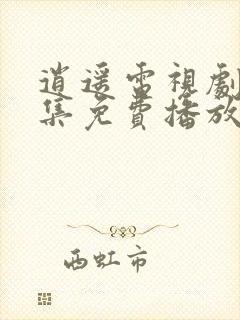 逍遥雷視劇
集免費播放
西虹市